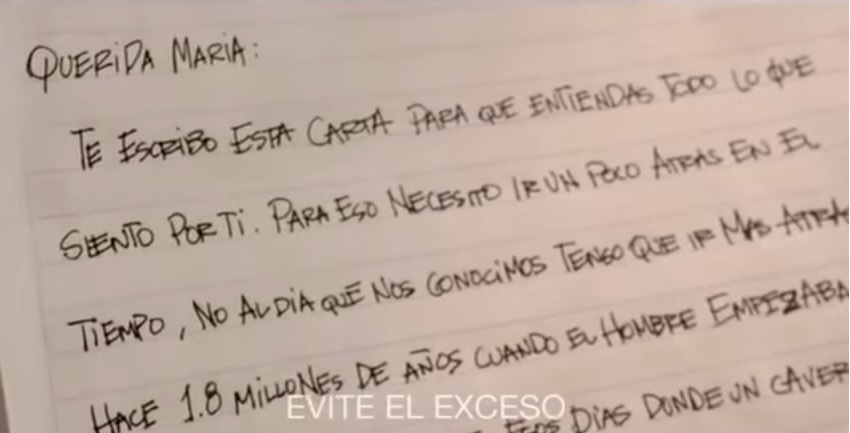 QUERIDA MARIA:
TE ESCRIBO ESTA CARTA PARA QUE ENTIENDAS TODO LO QUE
SIENTO POR TI. PARA ESO NECESITO IR UN POCO ATRAS EN EL
TIEMPO, NO AL DIA QUE NOS CONOCIMOS TENGO QUE IR MAS ATRAS
HACE 1.8 MILLONES DE AÑOS CUANDO EL HOMBRE EMPEZABA
DIAS DONDE UN CAVER
EVITE EL EXCESO